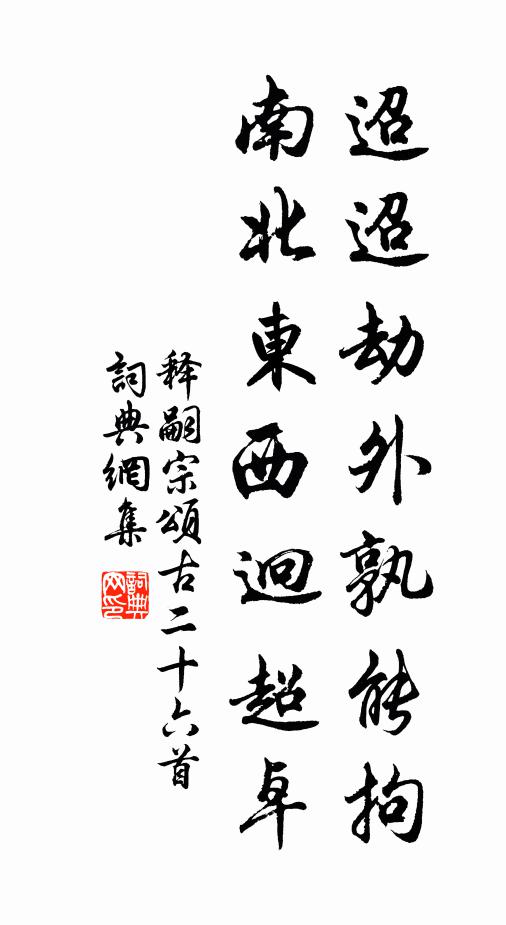 迢迢劫外孰能拘
南北東西迥超卓
释嗣宗頌古二十六首
詞典網集
詞典网印